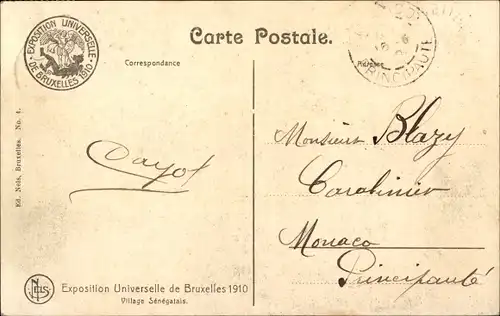 EXPOSITION UNIVERSELLE
DE BRUXELLES 1910
Carte Postale.
PRINCIPAUTÉ
Correspondance
Adresse
Ed. Nels, Bruxelles. No. 4.
Dayot
Monsieur Blazy
Carabinier
Monaco
Principauté
NELS
Exposition Universelle de Bruxelles 1910
Village Sénégalais.